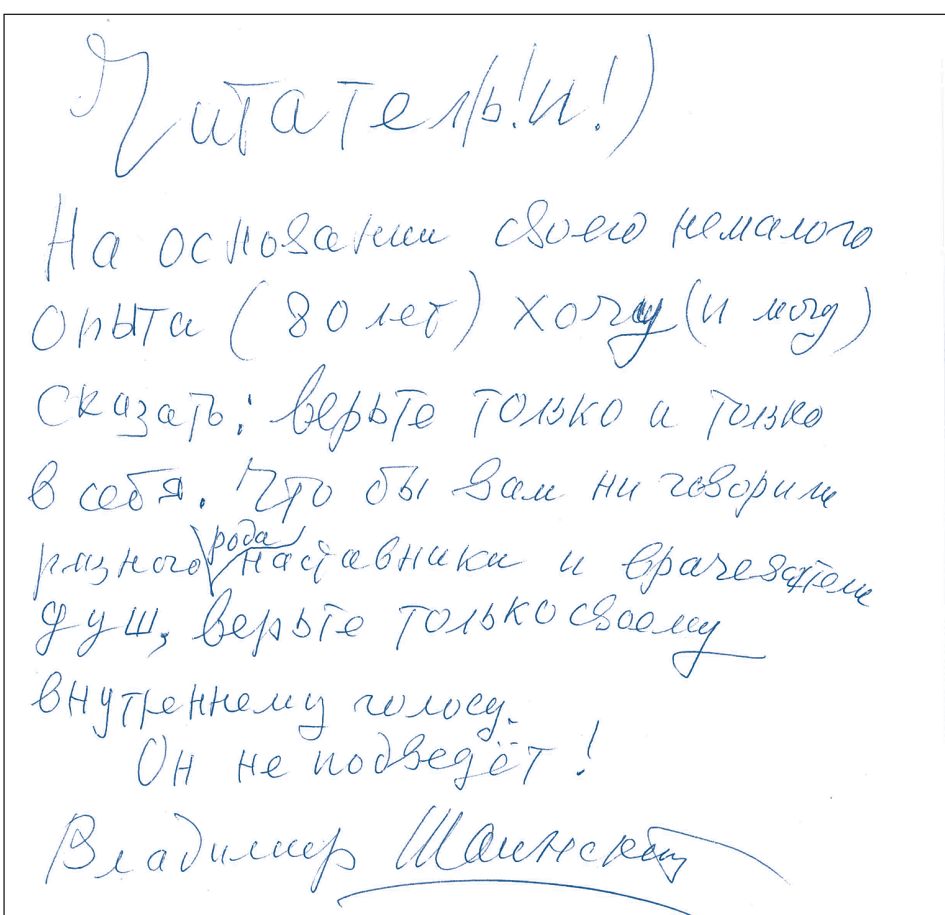 Читатель!(и!)
На основании своего немалого
опыта (80 лет) хочу (и могу)
сказать: верьте только и только
в себя. Что бы вам ни говорили
разного рода наставники и врачеватели
душ, верьте только своему
внутреннему голосу.
Он не подведёт!
Владимир Шаинский